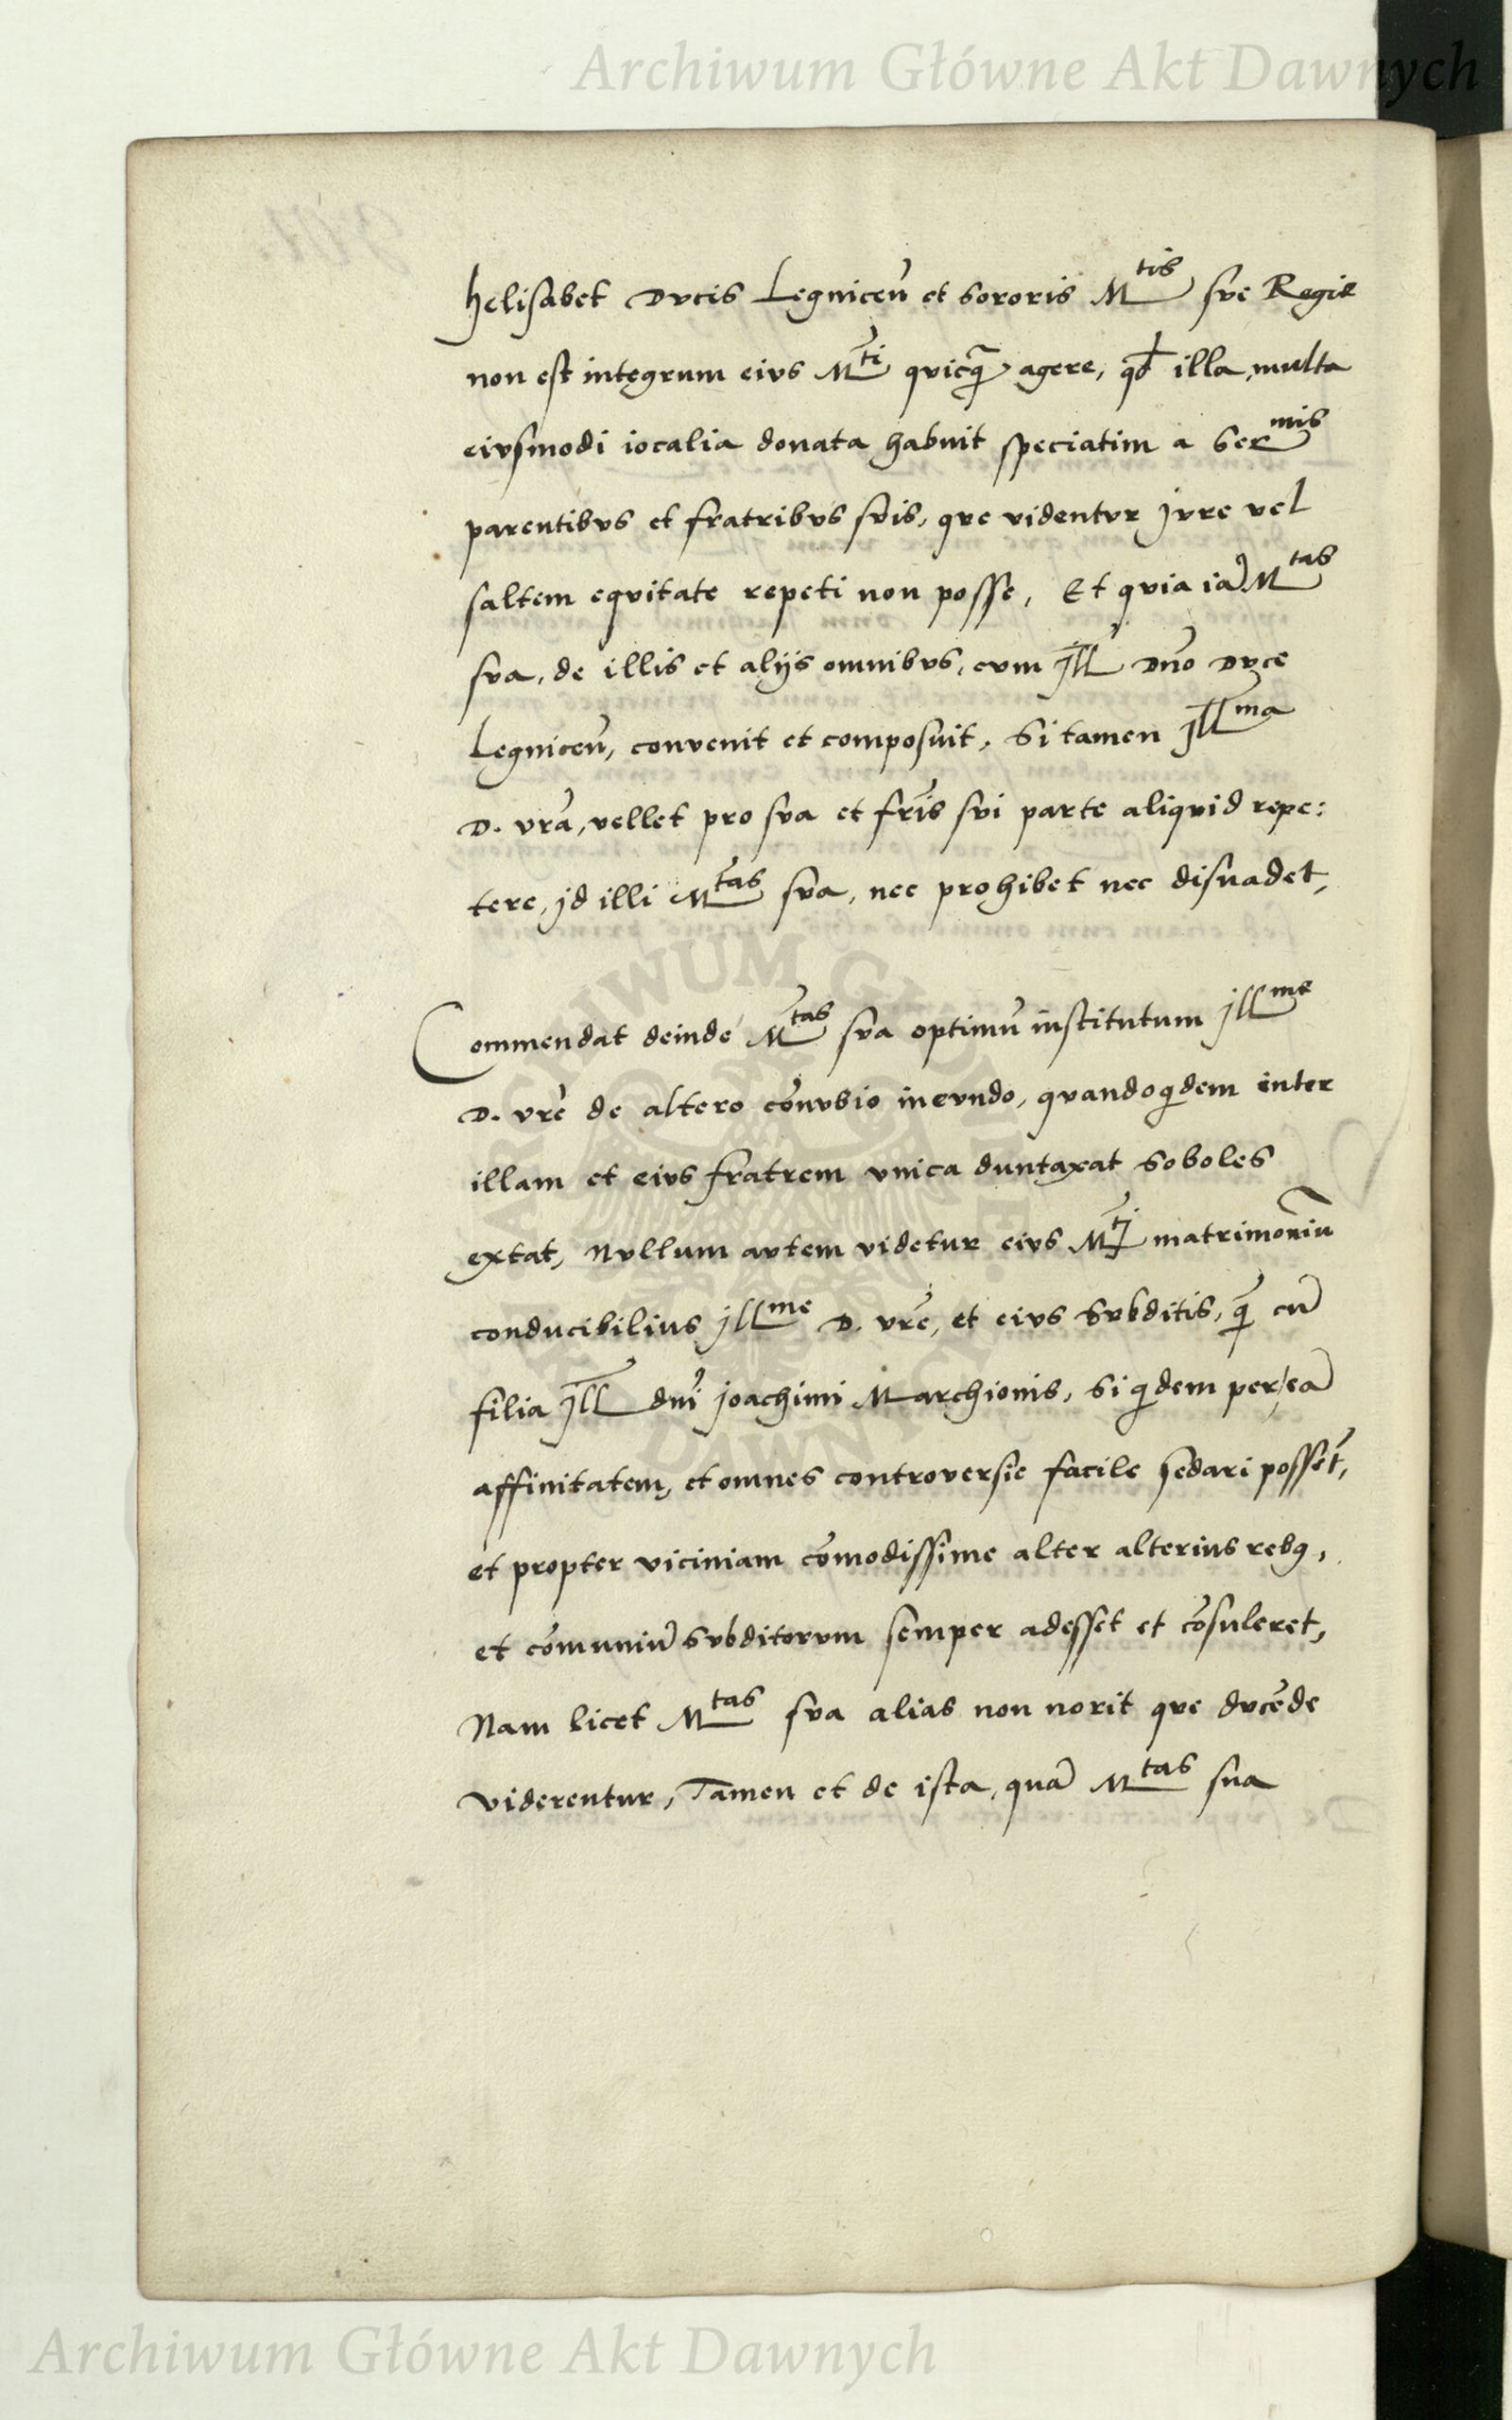 Archiwum Główne Akt Dawnych
helisabet Dvcis Legnicen̄ et sororis M^tis sve Regie
non est integrum eivs M^ti qvicq̄ agere, qđ illa multa
eivsmodi iocalia donata habuit speciatim a Ser^mis
parentibvs et fratribvs svis, qve videntvr jvre vel
saltem eqvitate repeti non posse, Et qvia iā M^tas
sva, de illis et alijs omnibvs, cvm Jll̄ Dn̄o Dvce
Legnicen̄, convenit et composuit, Si tamen Jll^ma
D. vrā, vellet pro sva et frīs svi parte aliqvid repe:
tere, jd illi M^tas sva, nec prohibet nec disuadet,
Commendat deinde M^tas sva optimū institutum jll^me
D. vrē de altero cōnvbio inevndo, qvandoq̄dem inter
illam et eivs fratrem vnica duntaxat soboles
extat, Nvllum avtem videtur eivs M^tj matrimoniū
conducibilius jll^me D. vrē, et eivs svbditis, q̄ cū
filia Jll̄ dn̄i joachimi Marchionis, Siq̄dem per eā
affinitatem, et omnes controversie facile sedari possēt,
et propter viciniam cōmodissime alter alterius rebꝰ,
et cōmuniū svbditorvm semper adesset et cōsuleret,
Nam licet M^tas sva alias non norit qve dvcēde
viderentur, Tamen et de ista, quā M^tas sua
ARCHIWUM GŁÓWNE AKT DAWNYCH
Archiwum Główne Akt Dawnych